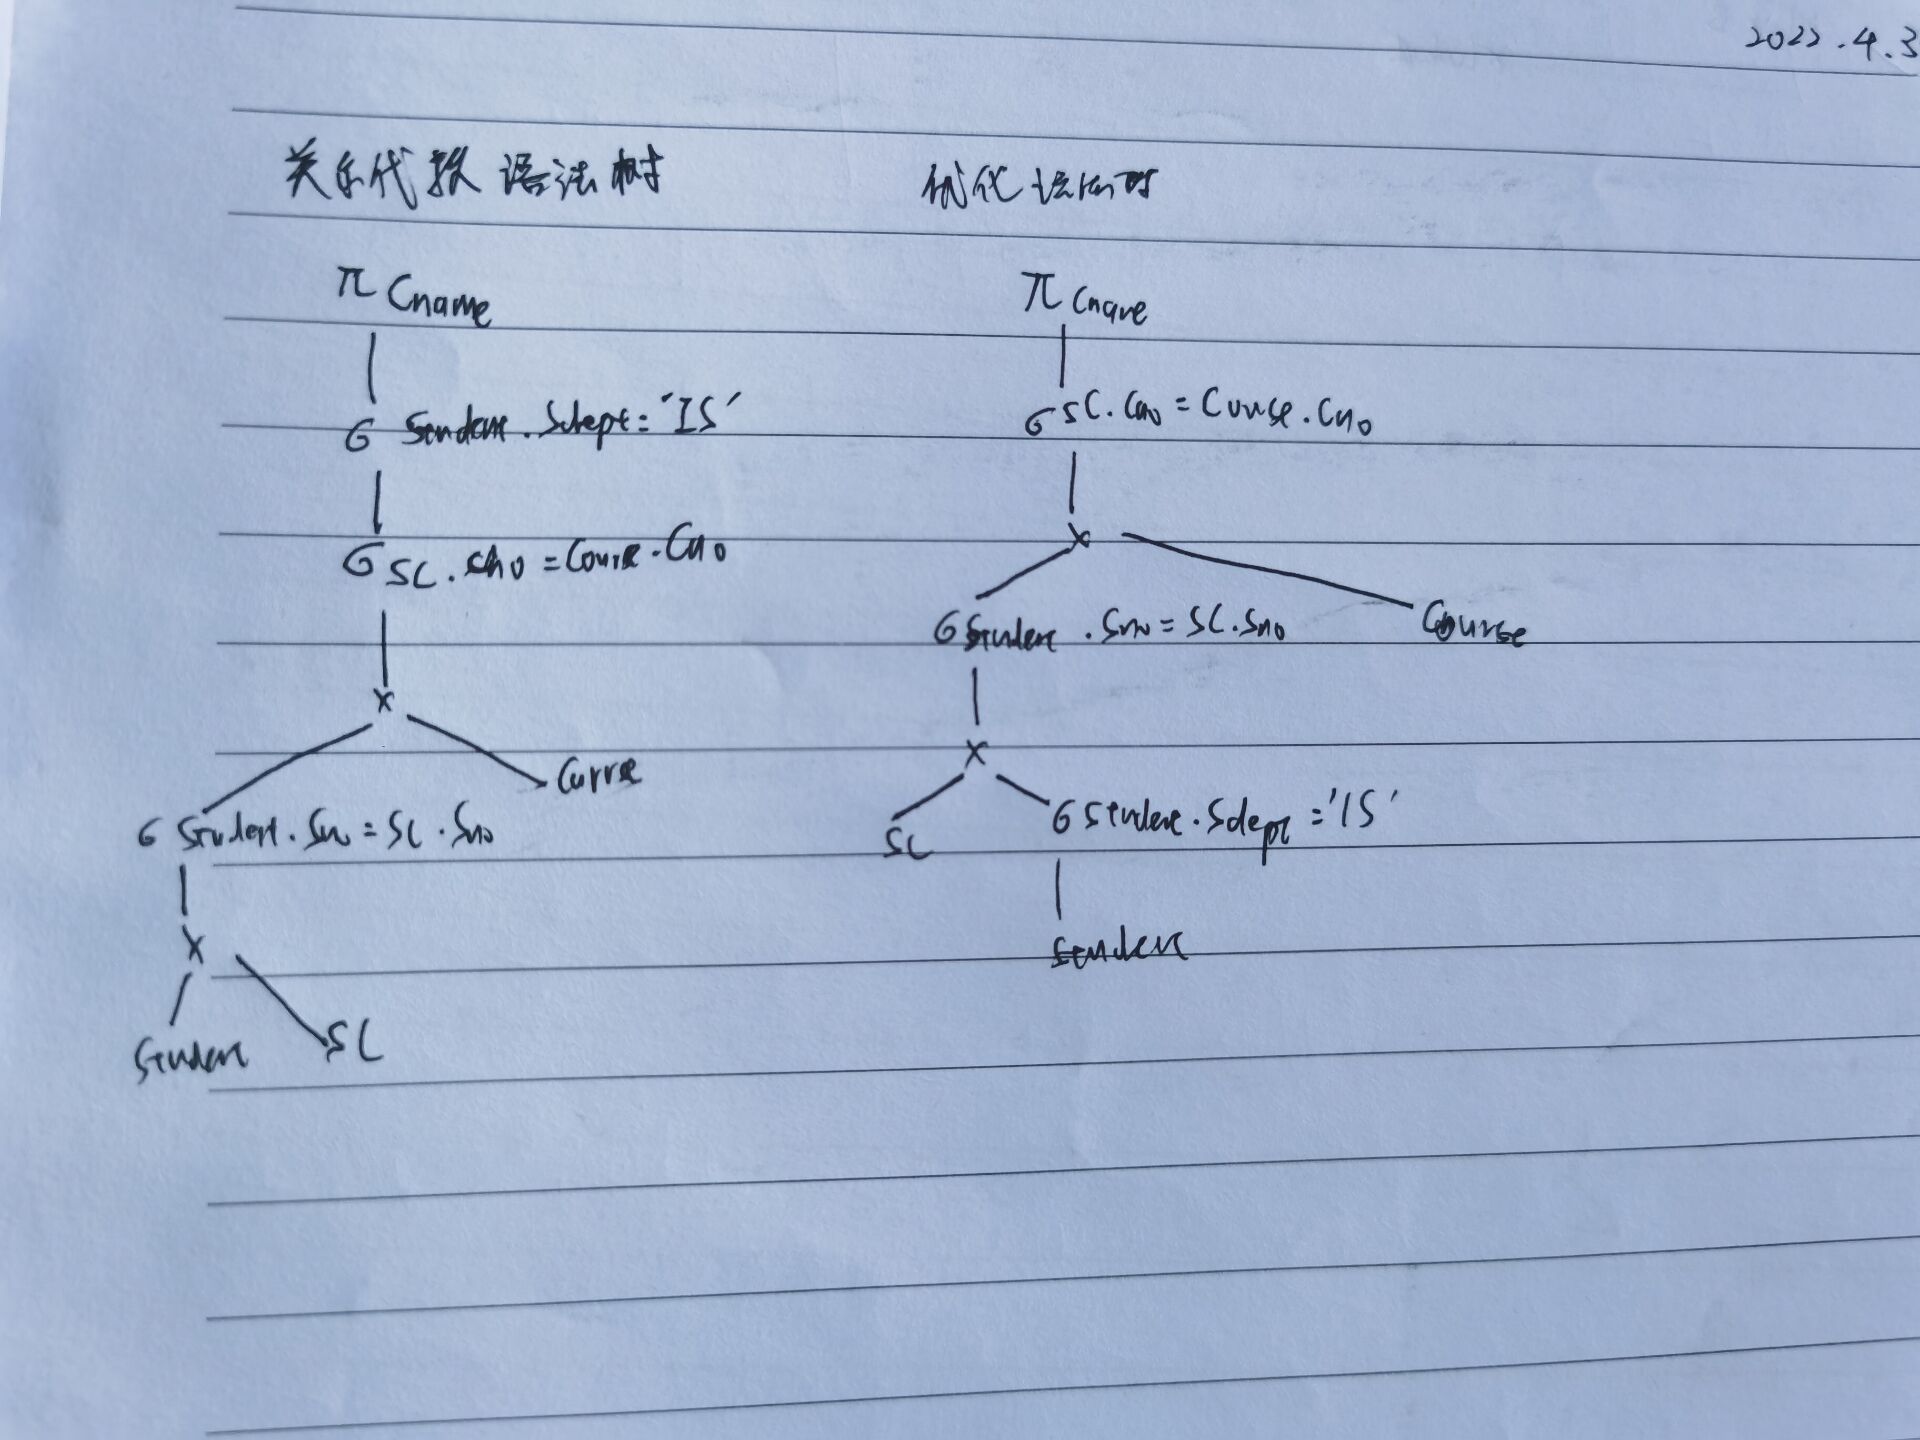 2022.4.3
关系代数语法树
优化语法树
π Cname
σ Student.Sdept='IS'
σ SC.Cno=Course.Cno
×
Course
σ Student.Sno=SC.Sno
×
Student
SC
π Cname
σ SC.Cno=Course.Cno
×
σ Student.Sno=SC.Sno
Course
×
SC
σ Student.Sdept='IS'
Student